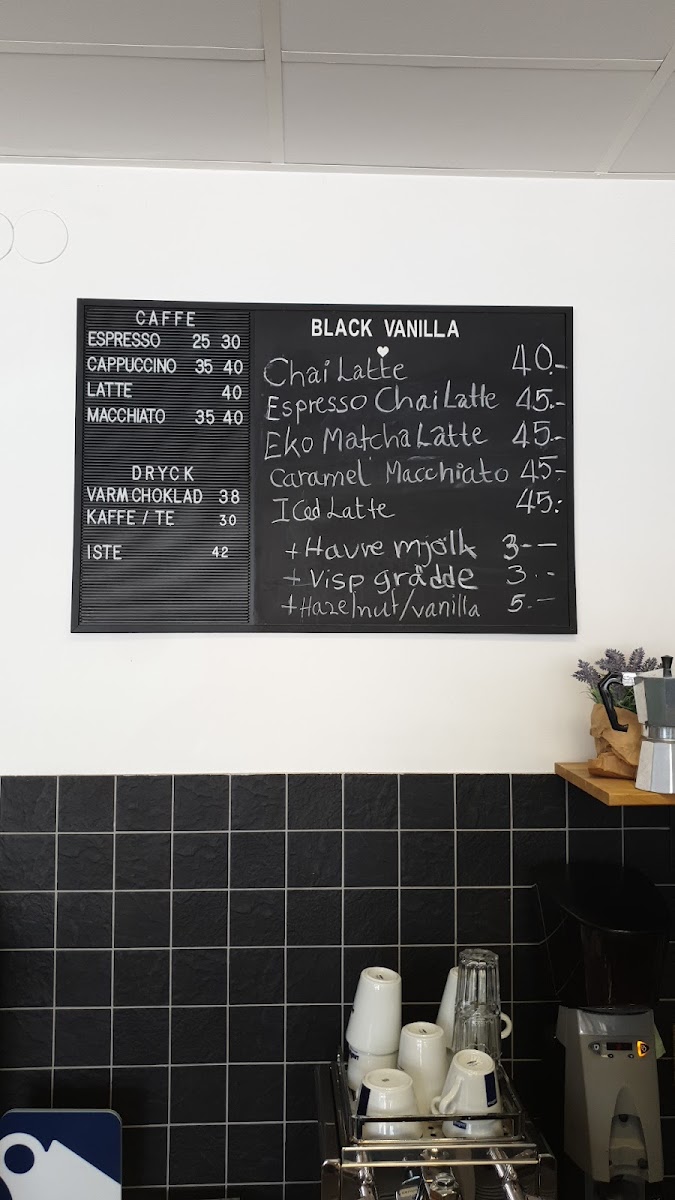 CAFFE
ESPRESSO 25 30
CAPPUCCINO 35 40
LATTE 40
MACCHIATO 35 40
DRYCK
VARM CHOKLAD 38
KAFFE / TE 30
ISTE 42
BLACK VANILLA
Chai Latte 40.-
Espresso Chai Latte 45.-
Eko Matcha Latte 45.-
Caramel Macchiato 45-
Iced Latte 45:-
+Havre mjölk 3--
+Visp grädde 3.-
+Hazelnut/vanilla 5.-